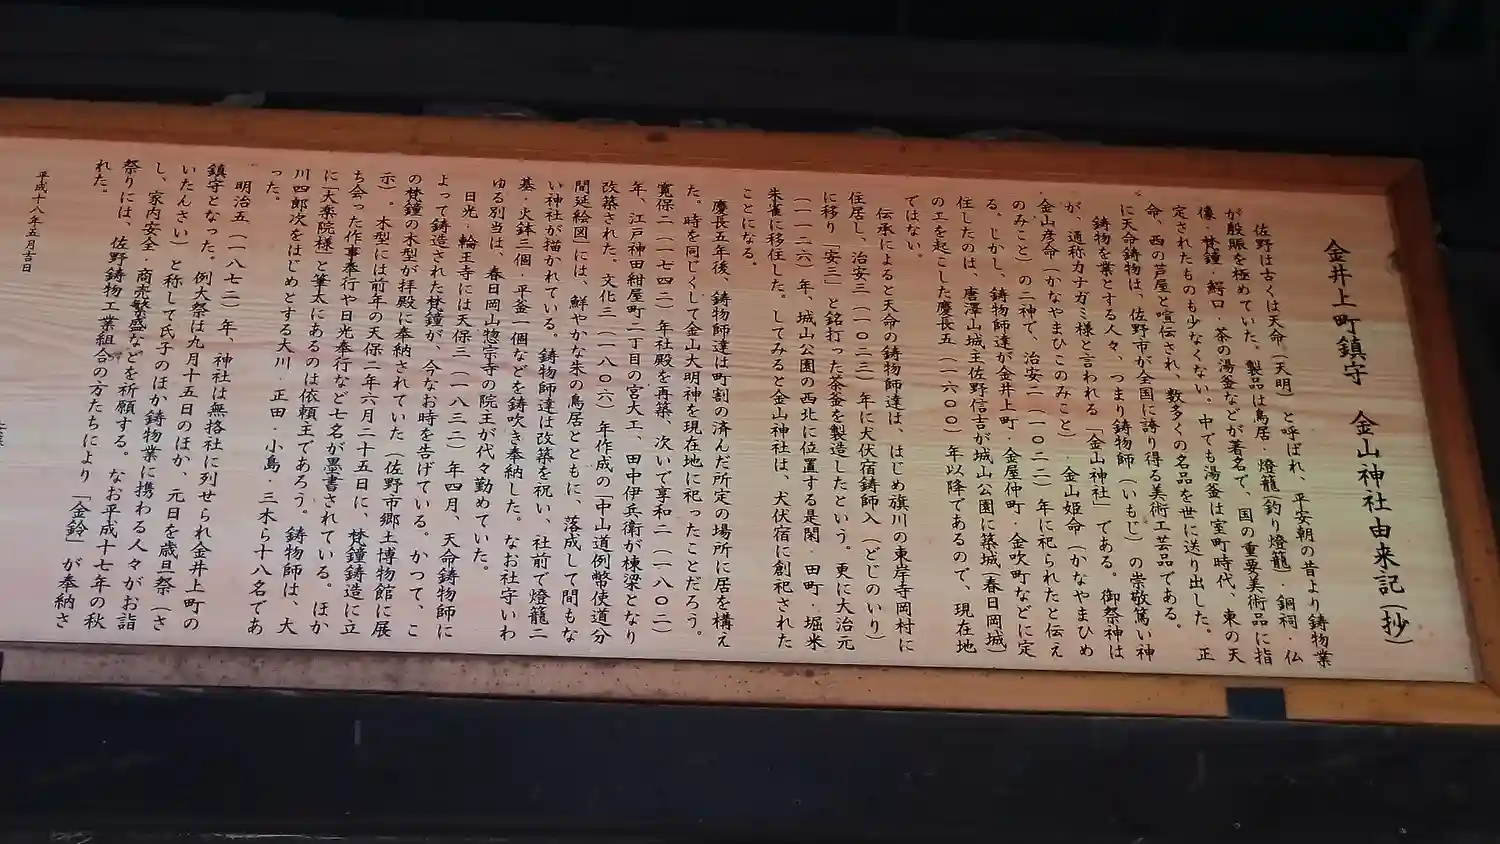 金井上町鎮守　金山神社由来記(抄)
佐野は古くは天命（天明）と呼ばれ、平安朝の昔より鋳物業
が殷賑を極めていた。製品は鳥居・燈籠（釣り燈籠）・銅祠・仏
像・梵鐘・鰐口・茶の湯釜などが著名で、国の重要美術品に指
定されたものも少なくない。中でも湯釜は室町時代、東の天
命、西の芦屋と喧伝され、数多くの名品を世に送り出した。正
に天命鋳物は、佐野市が全国に誇り得る美術工芸品である。
鋳物を業とする人々、つまり鋳物師（いもじ）の崇敬篤い神
が、通称カナガミ様と言われる「金山神社」である。御祭神は
金山彦命（かなやまひこのみこと）・金山姫命（かなやまひめ
のみこと）の二神で、治安二（一〇二二）年に祀られたと伝え
る。しかし、鋳物師達が金井上町・金屋仲町・金吹町などに定
住したのは、唐澤山城主佐野信吉が城山公園に築城（春日岡城）
の工を起こした慶長五（一六〇〇）年以降であるので、現在地
ではない。
伝承によると天命の鋳物師達は、はじめ旗川の東岸寺岡村に
住居し、治安三（一〇二三）年に犬伏宿鋳師入（どじのいり）
に移り「安三」と銘打った茶釜を製造したという。更に大治元
（一一二六）年、城山公園の西北に位置する是閑・田町・堀米
朱雀に移住した。してみると金山神社は、犬伏宿に創祀された
ことになる。
慶長五年後、鋳物師達は町割の済んだ所定の場所に居を構え
た。時を同じくして金山大明神を現在地に祀ったことだろう。
寛保二（一七四二）年社殿を再築、次いで享和二（一八〇二）
年、江戸神田紺屋町二丁目の宮大工、田中伊兵衛が棟梁となり
改築された。文化三（一八〇六）年作成の「中山道例幣使道分
間延絵図」には、鮮やかな朱の鳥居とともに、落成して間もな
い神社が描かれている。鋳物師達は改築を祝い、社前で燈籠二
基・火鉢三個・平釜一個などを鋳吹き奉納した。なお社守いわ
ゆる別当は、春日岡山惣宗寺の院主が代々勤めていた。
日光・輪王寺には天保三（一八三二）年四月、天命鋳物師に
よって鋳造された梵鐘が、今なお時を告げている。かつて、こ
の梵鐘の木型が拝殿に奉納されていた（佐野市郷土博物館に展
示）。木型には前年の天保二年六月二十五日に、梵鐘鋳造に立
ち会った作事奉行や日光奉行など七名が墨書されている。ほか
に「大楽院様」と筆太にあるのは依頼主であろう。鋳物師は、大
川四郎次をはじめとする大川・正田・小島・三木ら十八名であ
った。
明治五（一八七二）年、神社は無格社に列せられ金井上町の
鎮守となった。例大祭は九月十五日のほか、元日を歳旦祭（さ
いたんさい）と称して氏子のほか鋳物業に携わる人々がお詣
し、家内安全・商売繁盛などを祈願する。なお平成十七年の秋
祭りには、佐野鋳物工業組合の方たちにより「金鈴」が奉納さ
れた。
平成十八年五月吉日